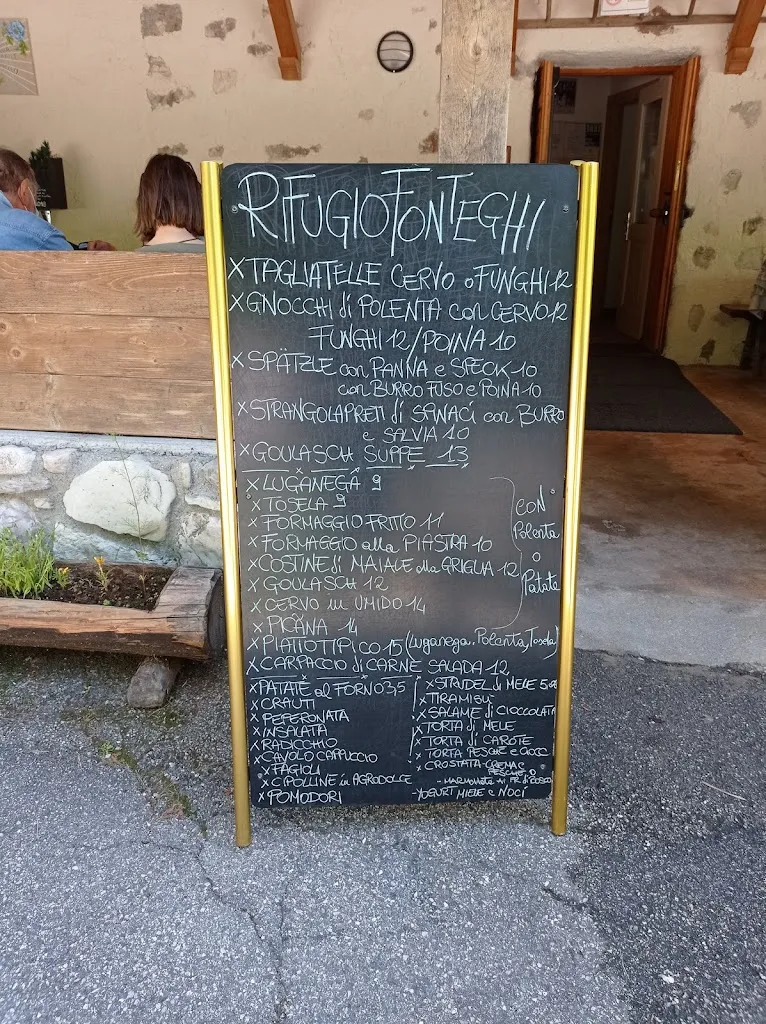 RIFUGIO FONTEGHI
x TAGLIATELLE CERVO o FUNGHI 12
x GNOCCHI di POLENTA con CERVO 12
FUNGHI 12/POINA 10
x SPÄTZLE con PANNA e SPECK 10
con BURRO FUSO e POINA 10
x STRANGOLAPRETI di SPINACI con BURRO
e SALVIA 10
x GOULASCH SUPPE 13
x LUGANEGA 9
x TOSELA 9
x FORMAGGIO FRITTO 11
x FORMAGGIO alla PIASTRA 10
x COSTINE di MAIALE alla GRIGLIA 12
x GOULASCH 12
x CERVO in UMIDO 14
x PICAÑA 14
CON
Polenta
o
Patate
x PIATTO TIPICO 15 (Luganega, Polenta, Tosela)
x CARPACCIO di CARNE SALADA 12
x PATATE al FORNO 3,5
x CRAUTI
x PEPERONATA
x INSALATA
x RADICCHIO
x CAVOLO CAPPUCCIO
x FAGIOLI
x CIPOLLINE in AGRODOLCE
x POMODORI
x STRUDEL di MELE 5,00
x TIRAMISU
x SALAME di CIOCCOLATA
x TORTA di MELE
x TORTA di CAROTE
x TORTA PESCHE e CIOCC
x CROSTATA - CREMA e
PESCHE O
- MARMELLATA AI FR. di BOSCO
- YOGURT MIELE e NOCI